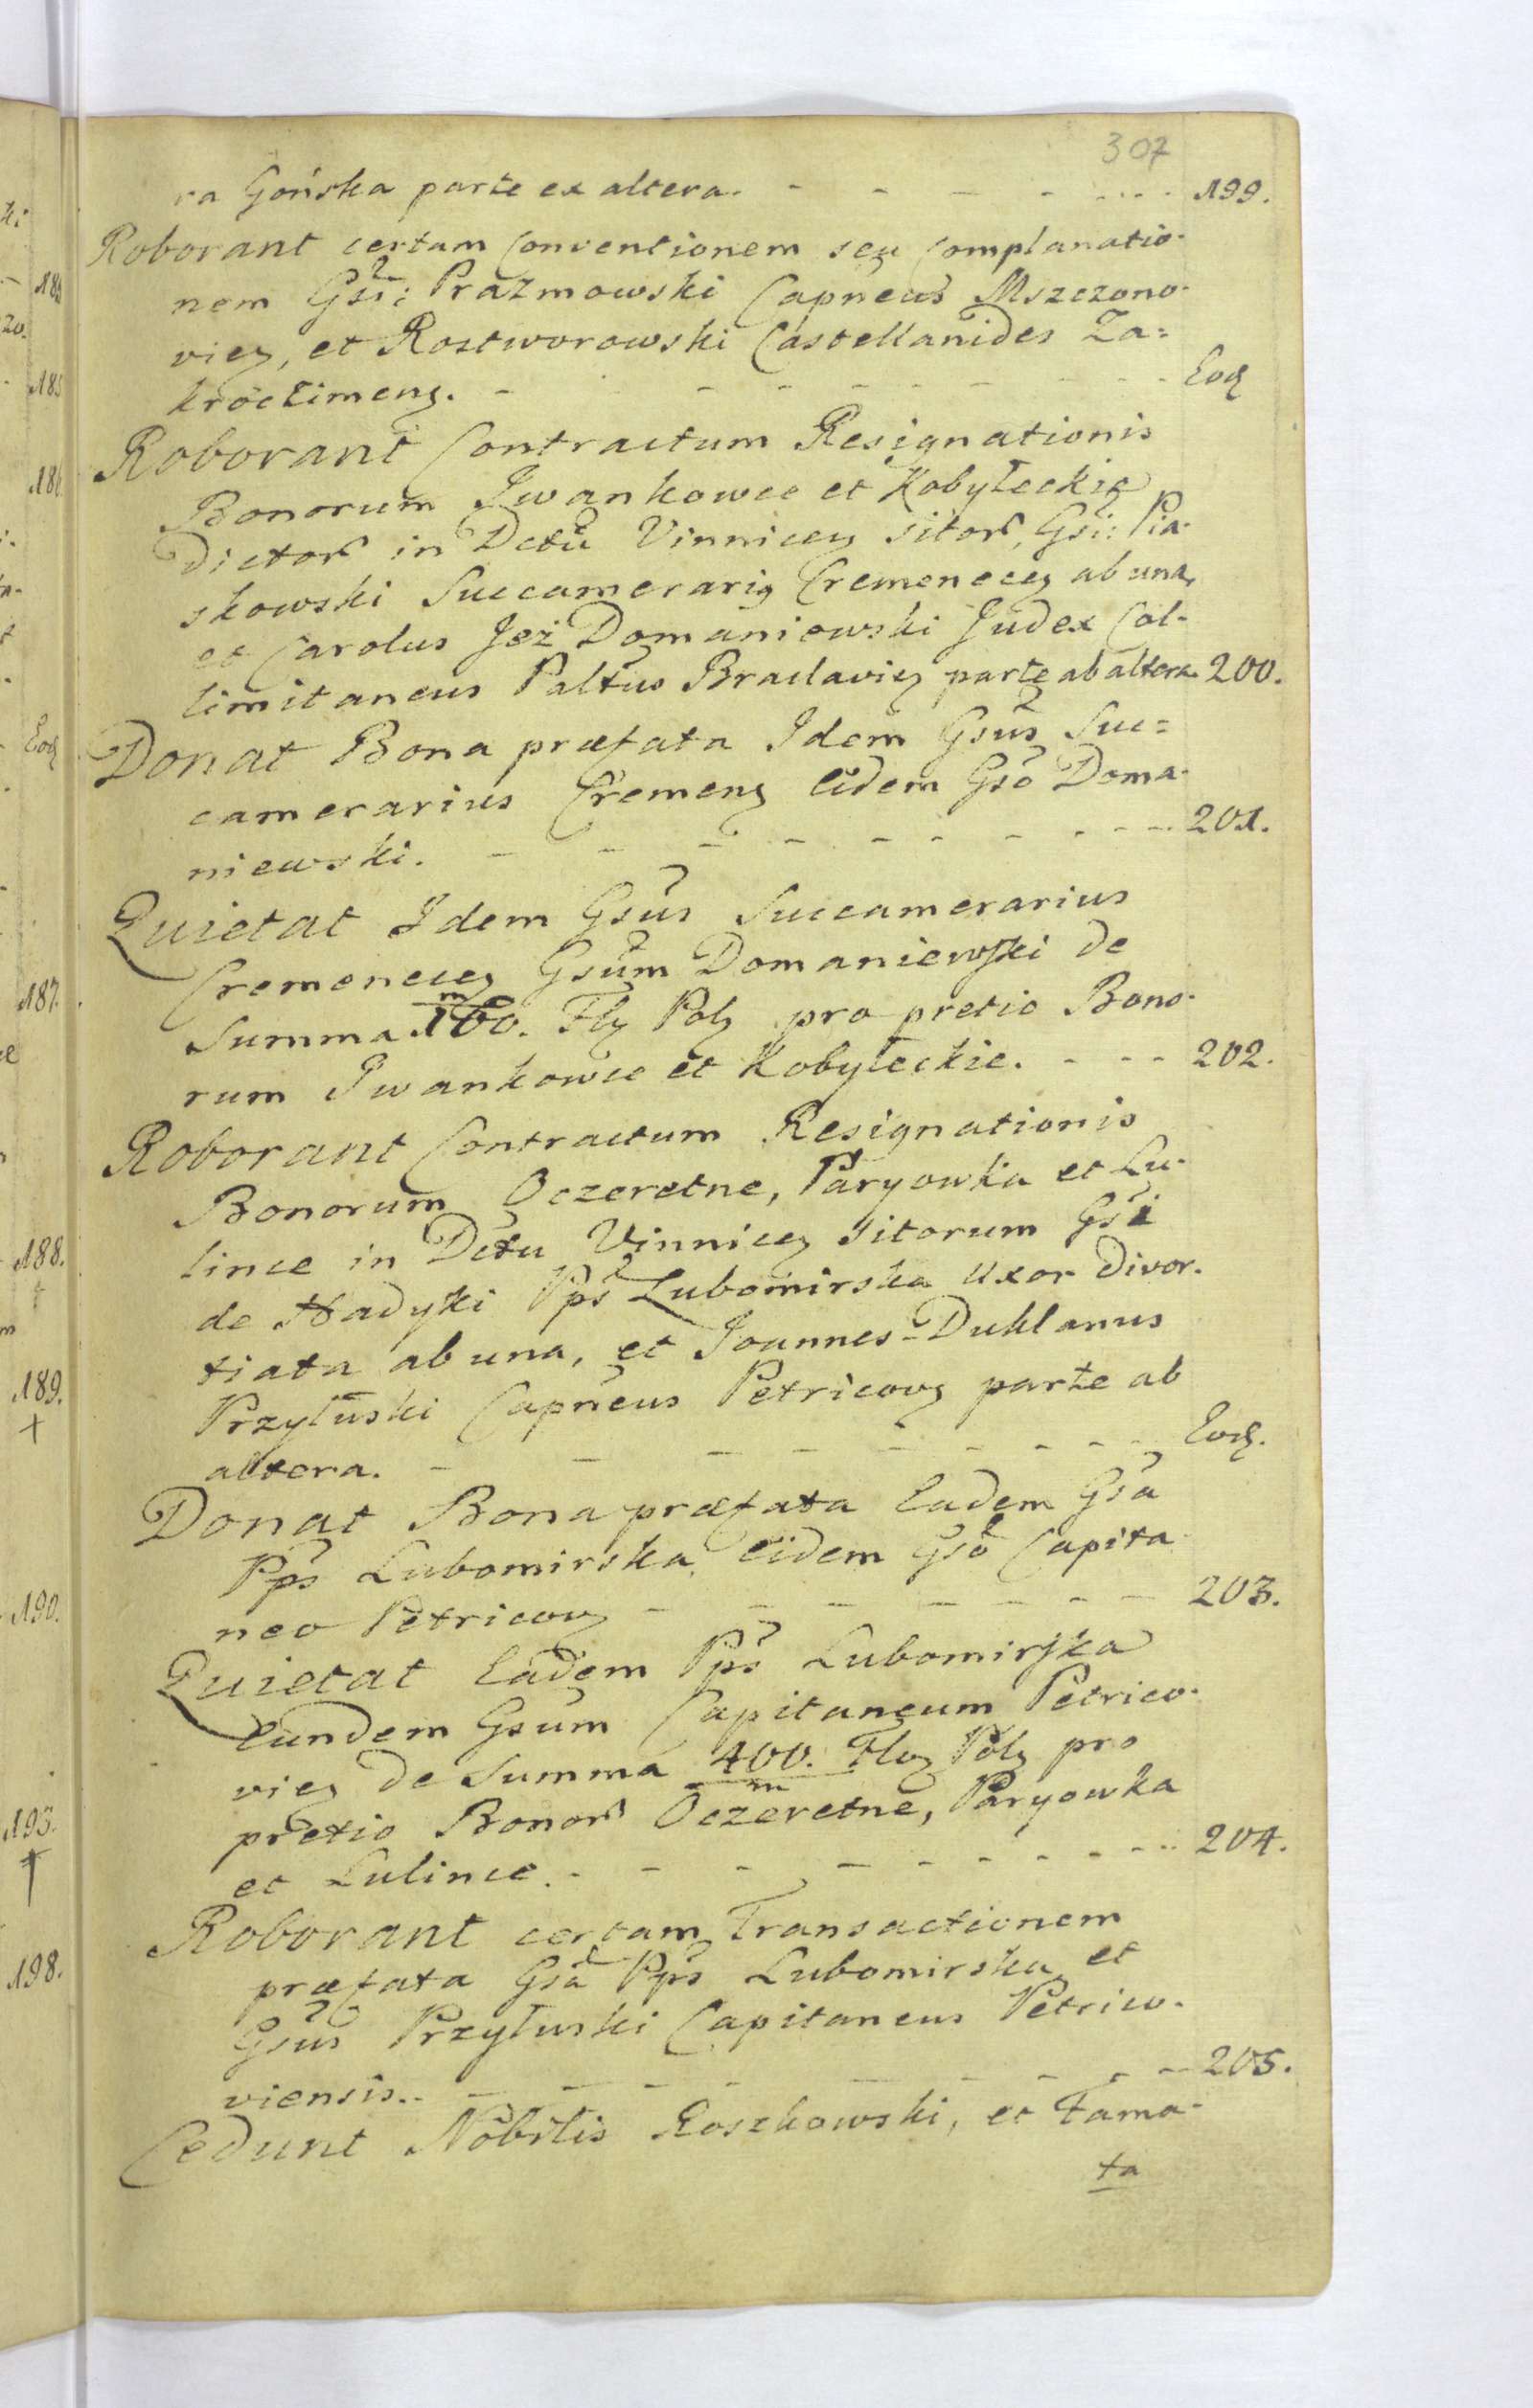 307
ra Gońska parte ex altera. - - - - - - - 199.
Roborant certam Conventionem seu Complanatio-
nem Gsi: Prażmowski Capneus Mszczono-
vien, et Rostworowski Castellanides Za=
kroctimens. - - - - - - - - Eod
Roborant Contractum Resignationis
Bonorum Iwankowce et Kobyłeckie
dictor in Dctu Vinnicen sitor, Gsi: Pia-
skowski Succamerarius Cremenecen ab una,
et Carolus Jeż Domaniewski Judex Col-
limitaneus Paltus Braclavien parte ab altera. 200.
Donat Bona præfata Idem Gsus Suc=
camerarius Cremens Eidem Gso Doma-
niewski. - - - - - - - - - 201.
Quietat Idem Gsus Succamerarius
Cremenecen Gsum Domaniewski de
Summa 160. m Fln Poln pro pretio Bono-
rum Iwankowce et Kobyłeckie. - - - 202.
Roborant Contractum Resignationis
Bonorum Oczeretne, Paryowka et Lu-
lince in Dctu Vinnicen sitorum Gsi
de Hadyki Pps Lubomirska Uxor divor-
tiata ab una, et Joannes-Duklanus
Przyłuski Capneus Petricovn parte ab
altera. - - - - - - - - - Eod.
Donat Bona præfata Eadem Gsa
Pps Lubomirska, Eidem Gso Capita-
neo Petricovn - - - - - - - 203.
Quietat Eadem Pps Lubomirska
Eundem Gsum Capitaneum Petrico-
vien de Summa 400. m Flon Poln pro
pretio Bonor Oczeretne, Paryowka
et Lulince. - - - - - - - - - 204.
Roborant certam Transactionem
præfata Gsa Pps Lubomirska et
Gsus Przyłuski Capitaneus Petrico-
viensis. - - - - - - - - - 205.
Cedunt Nobilis Roszkowski, et Fama-
ta
185
186
Eod
187.
188.
189.
190.
193.
198.